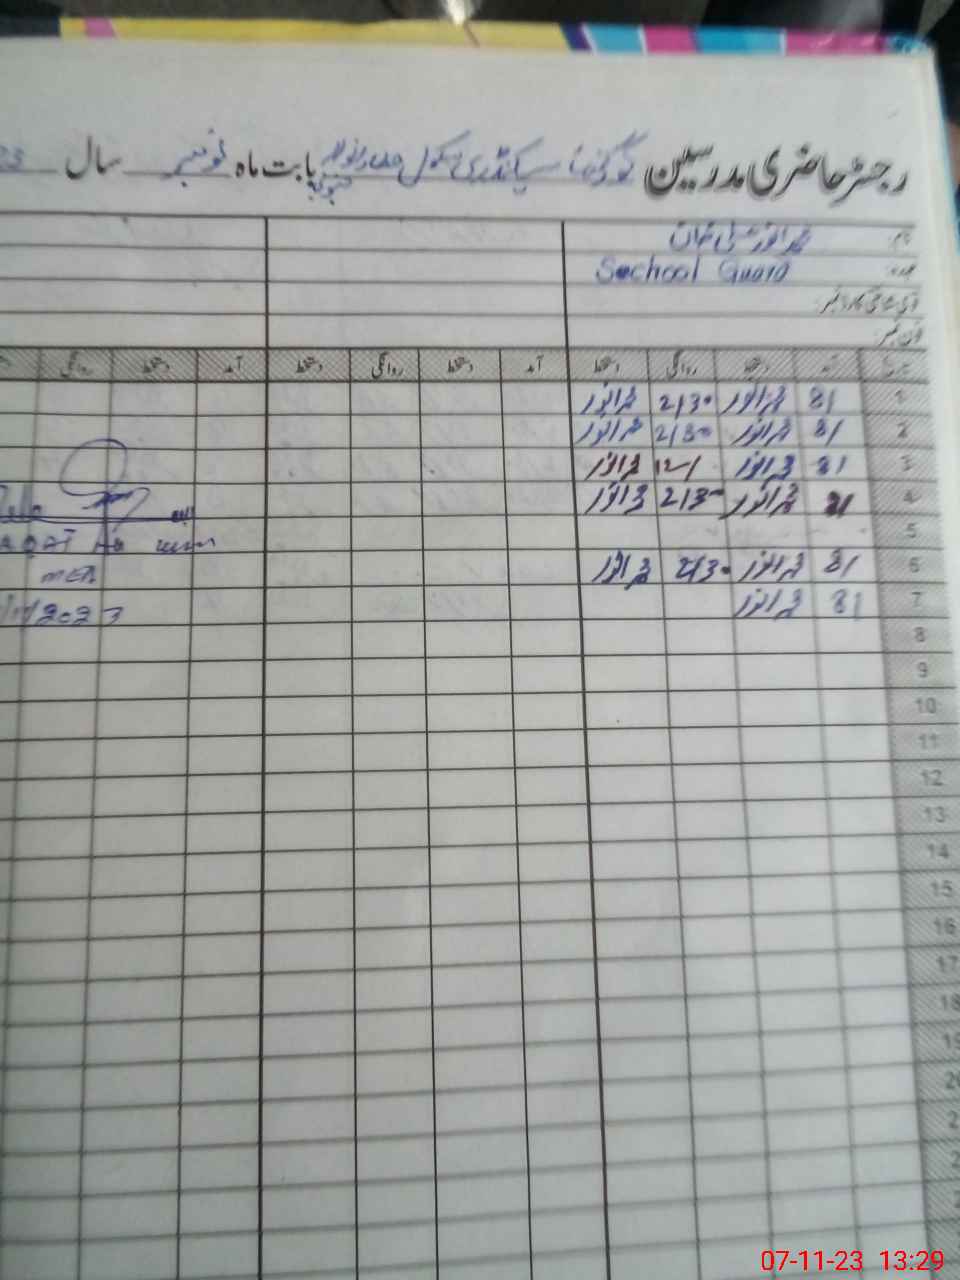 رجسٹر حاضری مدرسین گورنمنٹ سیکنڈری سکول بابت ماہ نومبر سال 23
نام:
محمد انور علی خان
عہدہ:
School Guard
قومی شناختی کارڈ نمبر:
فون نمبر:
تاریخ آمد دستخط روانگی دستخط آمد دستخط روانگی دستخط آمد دستخط روانگی
1 8/ محمد انور 2/30 محمد انور
2 8/ محمد انور 2/30 محمد انور
3 8/ محمد انور 12/ محمد انور
4 8/ محمد انور 2/30 محمد انور
5
6 8/ محمد انور 2/30 محمد انور
7 8/ محمد انور
MEA
/11/2023
8
9
10
11
12
13
14
15
16
17
18
19
20
2
2
2
07-11-23 13:29